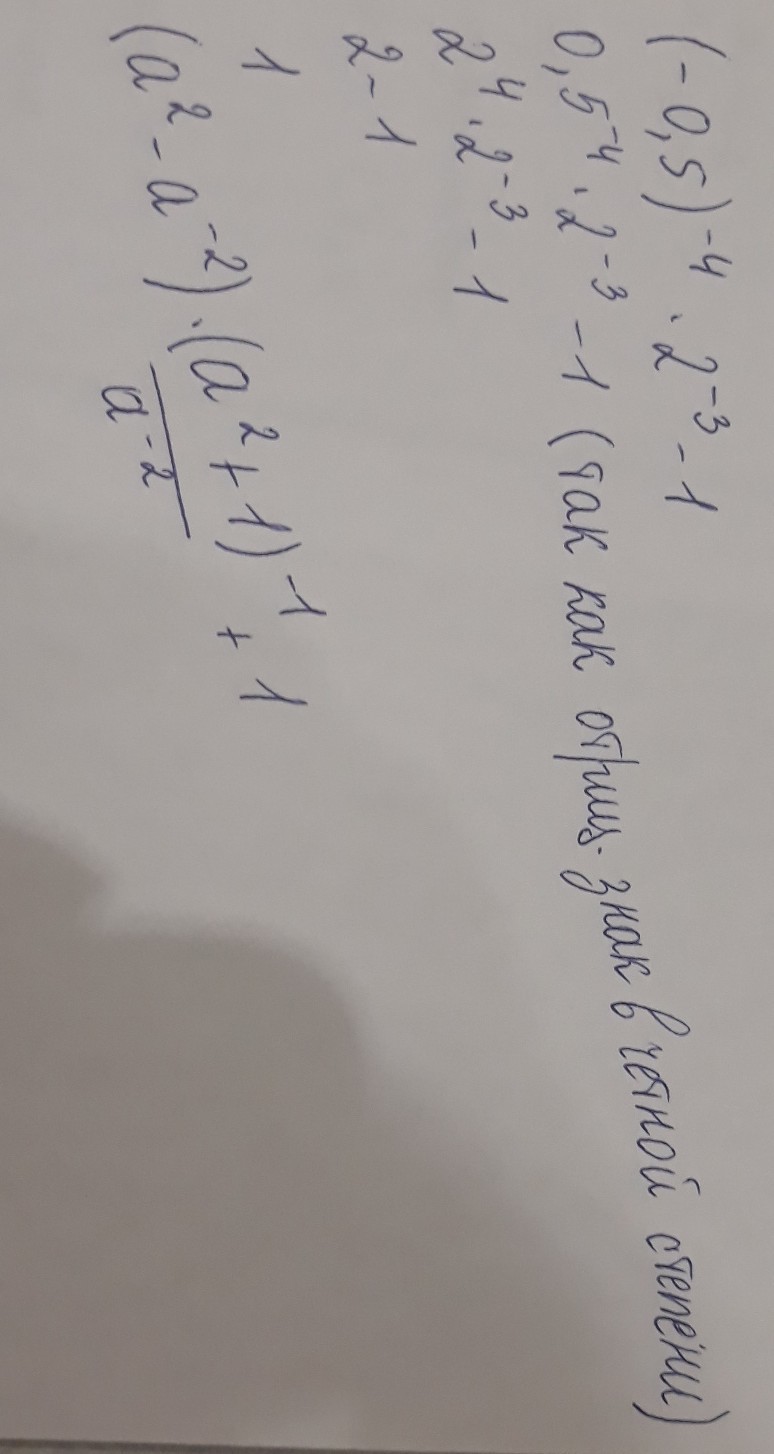 (-0,5)⁻⁴ · 2⁻³ - 1
0,5⁻⁴ · 2⁻³ - 1 (так как отриц. знак в четной степени)
2⁴ · 2⁻³ - 1
2 - 1
1
(a² - a⁻²) · (a² + 1)⁻¹ + 1
a⁻²